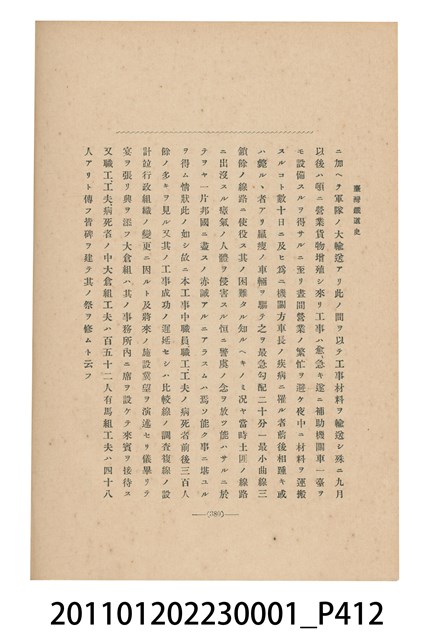 臺灣鐵道史
ニ加ヘテ軍隊ノ大輸送アリ此ノ間ヲ以テ工事材料ヲ輸送シ殊ニ九月
以後ハ頓ニ營業貨物增殖シ來リ工事ハ愈急キ遂ニ補助機關車一臺ヲ
モ設備スルヲ得サルニ至リ晝間營業ノ繁忙ヲ避ケ夜中ニ材料ヲ運搬
スルコト數十日ニ及ヒ爲ニ機關方車長ノ疾病ニ罹ル者前後相踵キ或
ハ斃ルヽ者アリ羸瘦ノ車輛ヲ聯テ之ヲ最急勾配二十分一最小曲線三
鎖餘ノ線路ニ使役ス其ノ困難タル知ルヘキノミ況ヤ當時土匪ノ線路
ニ出沒スル瘴氣ノ人體ヲ侵害スル恒ニ警虞ノ念ヲ放フ能ハサルニ於
テヲヤ一片邦國ニ盡スノ赤誠アルニアラスムハ焉ソ能ク事ニ堪ユル
ヲ得ム情狀此ノ如シ故ニ本工事中職員職工工夫ノ病死者前後三百人
餘ノ多キヲ見ル又其ノ工事成功ノ遲延セシハ比較線ノ調査複線ノ設
計竝行政組織ノ變更ニ因ルト及將來ノ施設冀望ヲ演述セリ儀畢リテ
宴ヲ張リ興ヲ添フ大倉組ハ其ノ事務所內ニ席ヲ設ケテ來賓ヲ接待ス
又職工工夫病死者ノ中大倉組工夫ハ百五十二人有馬組工夫ハ四十八
人アリト傳フ皆碑ヲ建テ其ノ祭ヲ修ムト云フ
(380)
201101202230001_P412